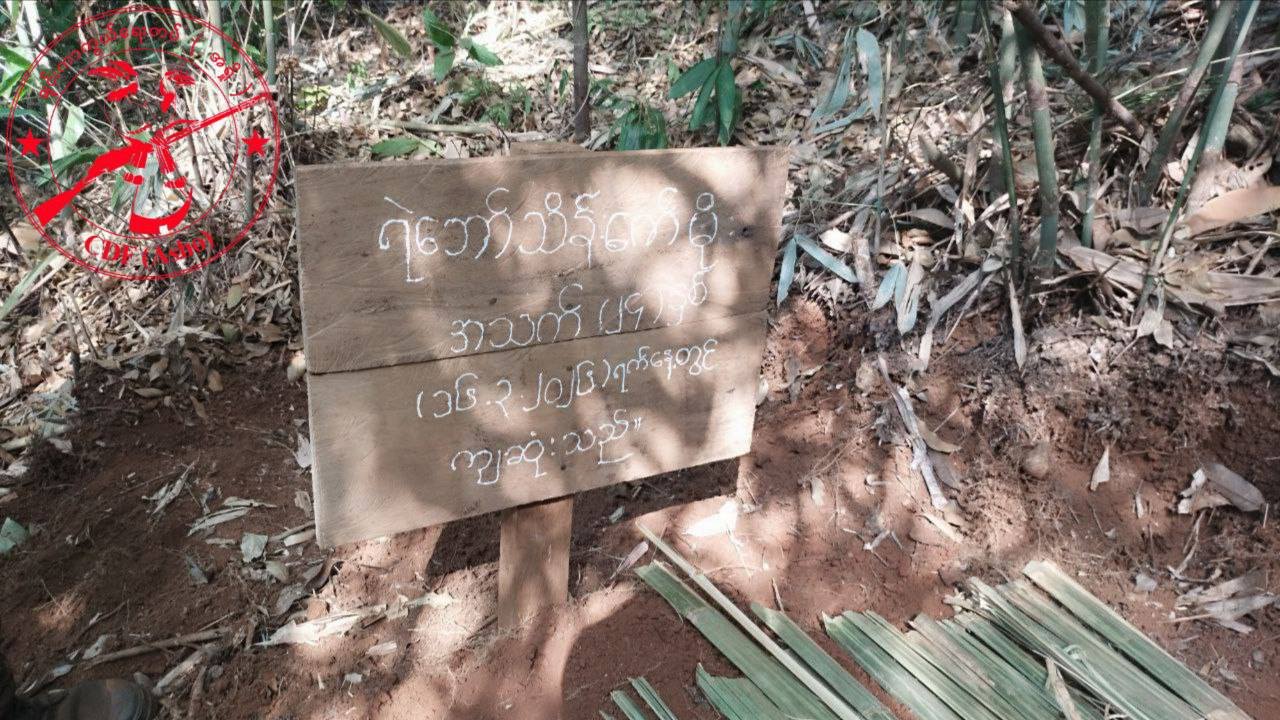 ရဲဘော်သိန်ဇော်မို
အသက် (၂၄) နှစ်
(၁၆.၃.၂၀၂၆) ရက်နေ့တွင်
ကျဆုံးသည်။